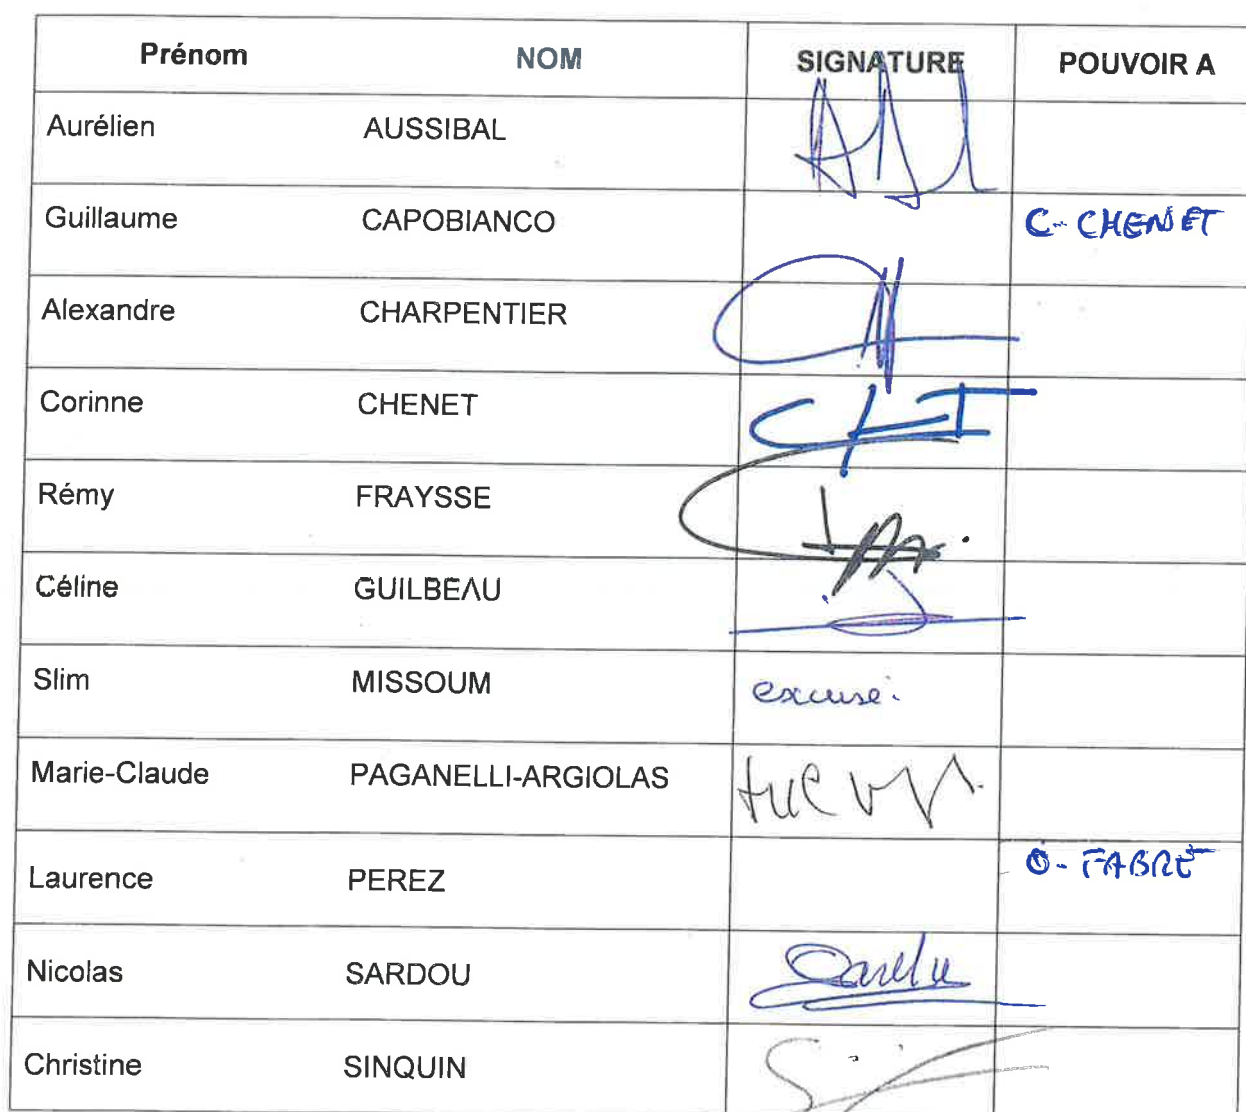 Prénom NOM SIGNATURE POUVOIR A
Aurélien AUSSIBAL
Guillaume CAPOBIANCO C- CHENET
Alexandre CHARPENTIER
Corinne CHENET
Rémy FRAYSSE
Céline GUILBEAU
Slim MISSOUM excusé.
Marie-Claude PAGANELLI-ARGIOLAS
Laurence PEREZ O- FABRE
Nicolas SARDOU
Christine SINQUIN